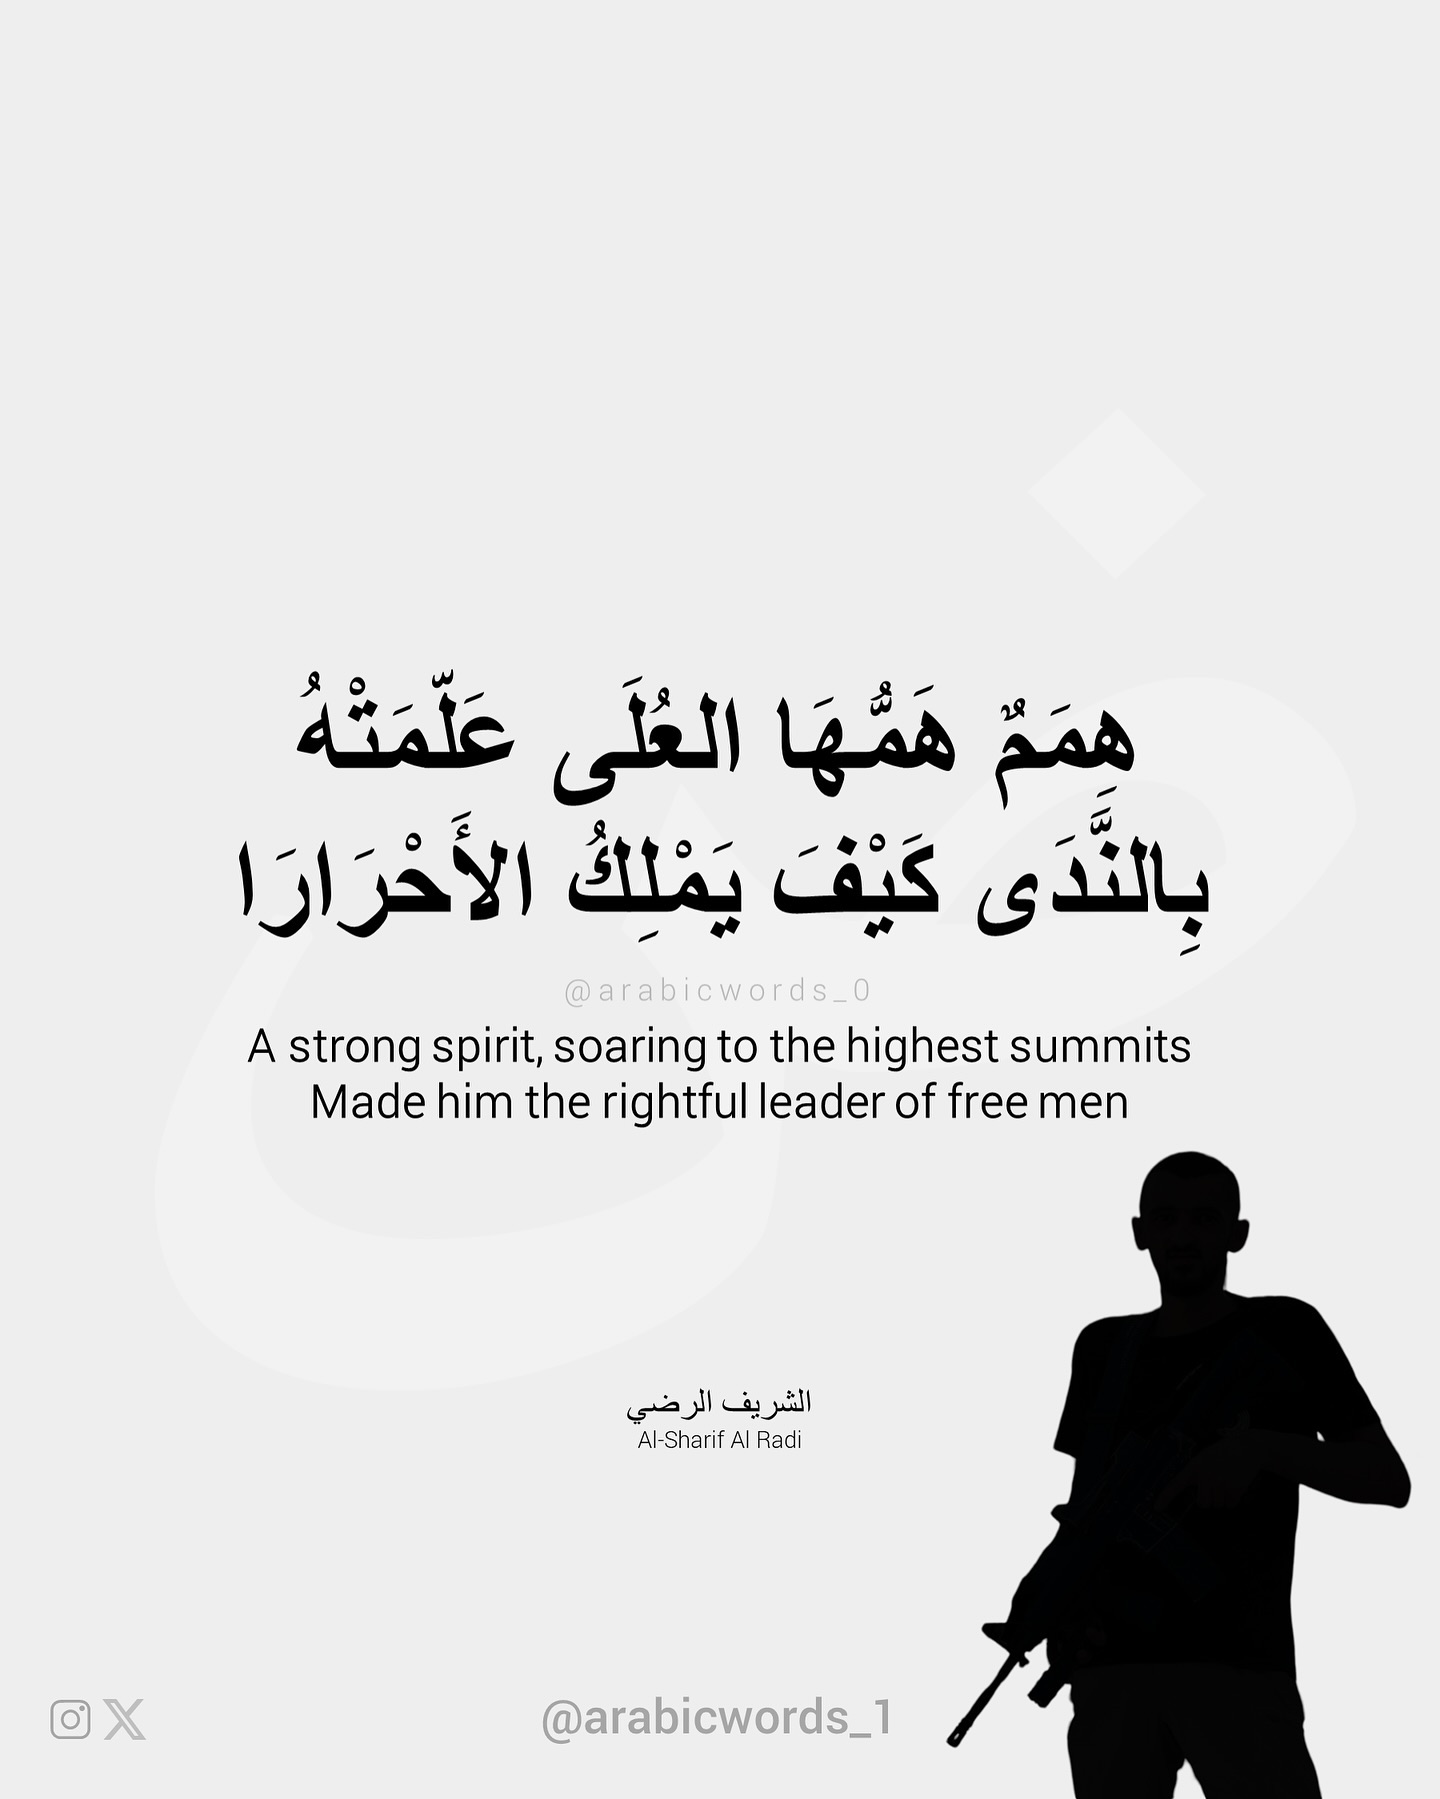 هِمَمٌ هَمُّهَا العُلَى عَلّمَتْهُ
بِالنَّدَى كَيْفَ يَمْلِكُ الأَحْرَارَا
@arabicwords_0
A strong spirit, soaring to the highest summits
Made him the rightful leader of free men
الشريف الرضي
Al-Sharif Al Radi
@arabicwords_1